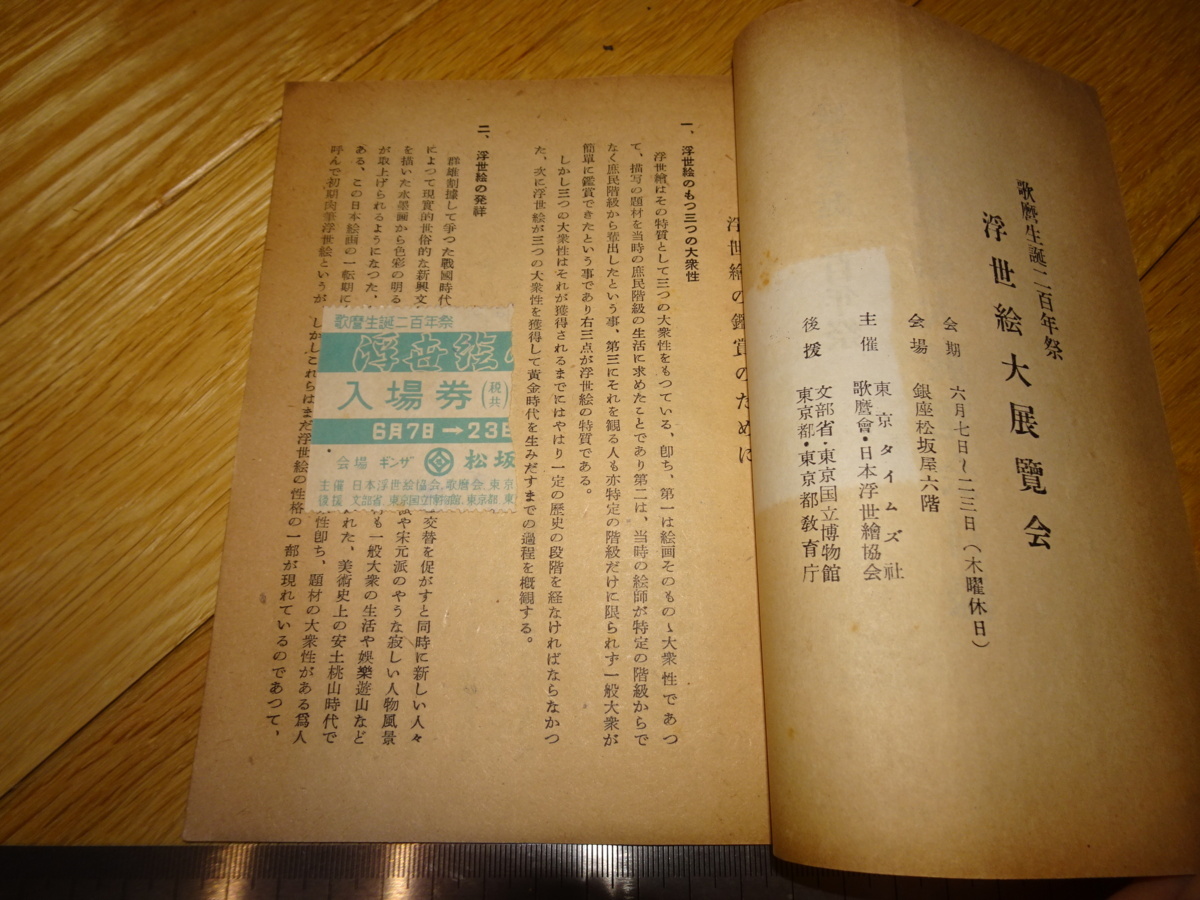 歌麿生誕二百年祭
浮世絵大展覧会
会期 六月七日~二三日(木曜休日)
会場 銀座松坂屋六階
主催 東京タイムズ社
歌麿會・日本浮世繪協会
後援 文部省・東京国立博物館
東京都・東京都教育庁
浮世繪の鑑賞のために
一、浮世絵のもつ三つの大衆性
浮世繪はその特質として三つの大衆性をもつている、卽ち、第一は絵画そのもの〻大衆性であつ
て、描写の題材を当時の庶民階級の生活に求めたことであり第二は、当時の絵師が特定の階級からで
なく庶民階級から輩出したという事、第三にそれを観る人も亦特定の階級だけに限られず一般大衆が
簡單に鑑賞できたという事であり右三点が浮世絵の特質である。
しかし三つの大衆性はそれが獲得されるまでにはやはり一定の歴史の段階を経なければならなかつ
た、次に浮世絵が三つの大衆性を獲得して黄金時代を生みだすまでの過程を概観する。
二、浮世絵の発祥
群雄割據して爭つた戰國時代
交替を促がすと同時に新しい人々
によつて現實的世俗的な新興文
や宋元派のやうな寂しい人物風景
を描いた水墨画から色彩の明る
も一般大衆の生活や娯樂遊山など
が取上げられるようになつた、
れた、美術史上の安土桃山時代で
ある、この日本絵画の一転期に
性卽ち、題材の大衆性がある爲人
呼んで初期肉筆浮世絵というが
しかしこれらはまだ浮世絵の性格の一部が現れているのであつて、
歌麿生誕二百年祭
浮世絵の
入場券(税共)
6月7日→23日
会場 ギンザ 松坂
主催 日本浮世絵協会、歌麿会、東京
後援 文部省、東京国立博物館、東京都、東